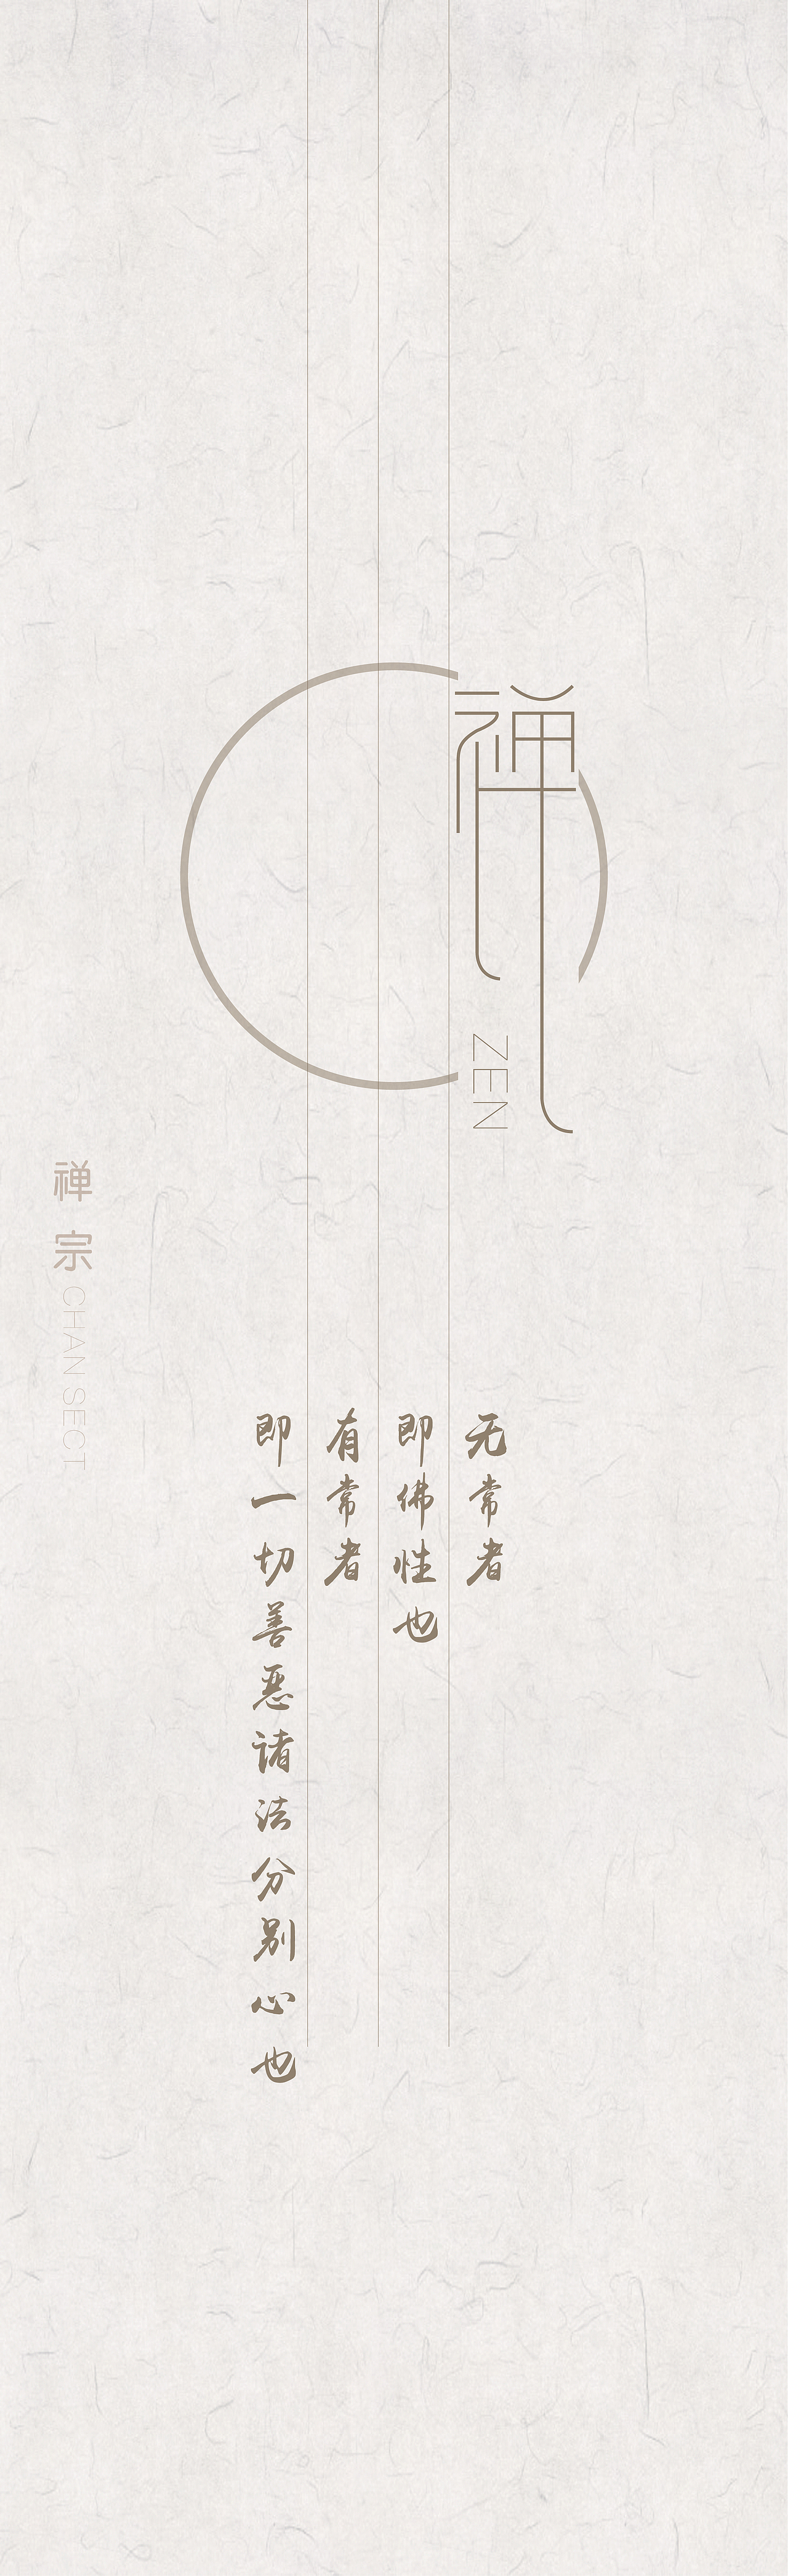 禅
ZEN
禅宗
CHAN SECT
无常者
即佛性也
有常者
即一切善恶诸法分别心也